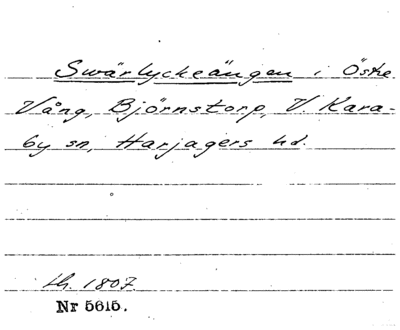 Swärlyckeängen i Öske
Vång, Björnstorp, V. Kara-
by sn, Harjagers hd.
lh. 1807
Nr 5615.